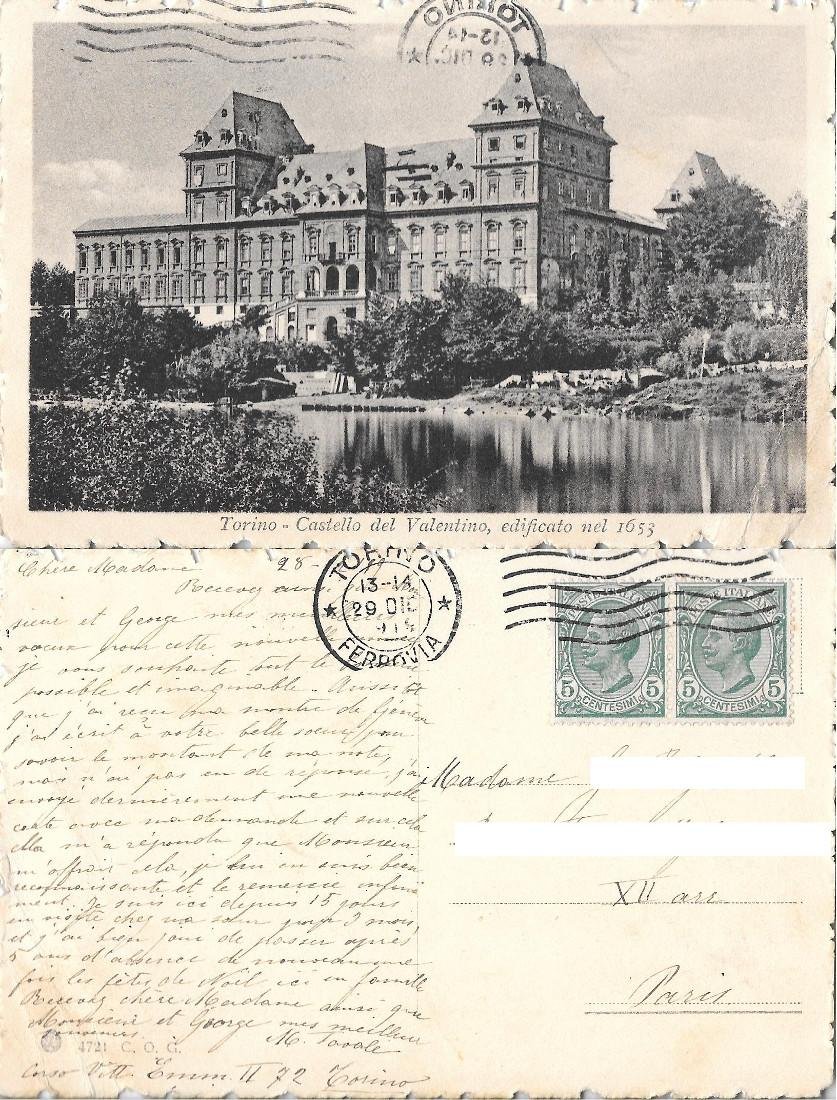 TORINO
12-14
29 DIC.
Torino - Castello del Valentino, edificato nel 1653
Chère Madame 28-
Recevez ainsi
sieur et George mes
voeux pour cette nouvelle année
je vous souhaite tout le
possible et imaginable. Aussitôt
que j'ai reçu ma montre de Genève
j'ai écrit à votre belle soeur pour
savoir le montant de ma note,
mais n'ai pas eu de réponse. j'ai
envoyé dernièrement une nouvelle
carte avec ma demande et sur cela
elle m'a répondu que Monsieur
m'offrait cela, je lui en suis bien
reconnaissante et le remercie infini
ment. Je suis ici depuis 15 jours
en visite chez ma soeur pour 2 mois,
et j'ai bien joui de passer après
5 ans d'absence de nouveau une
fois les fêtes de Noël ici en famille
Recevez chère Madame ainsi que
Monsieur et George mes meilleurs
souvenirs. M.
4721 C. O. G.
Corso Vitt. Emm. II 72 Torino
TORINO
13-14
29 DIC.
FERROVIA
POSTE ITALIANE
5 CENTESIMI 5
POSTE ITALIANE
5 CENTESIMI 5
Madame
XII arr
Paris